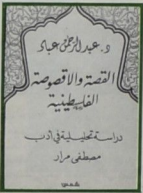 د. عبد الرحمن عباد
القصة والاقصوصة
الفلسطينية
دراسة تحليلية في ادب
مصطفى مرار